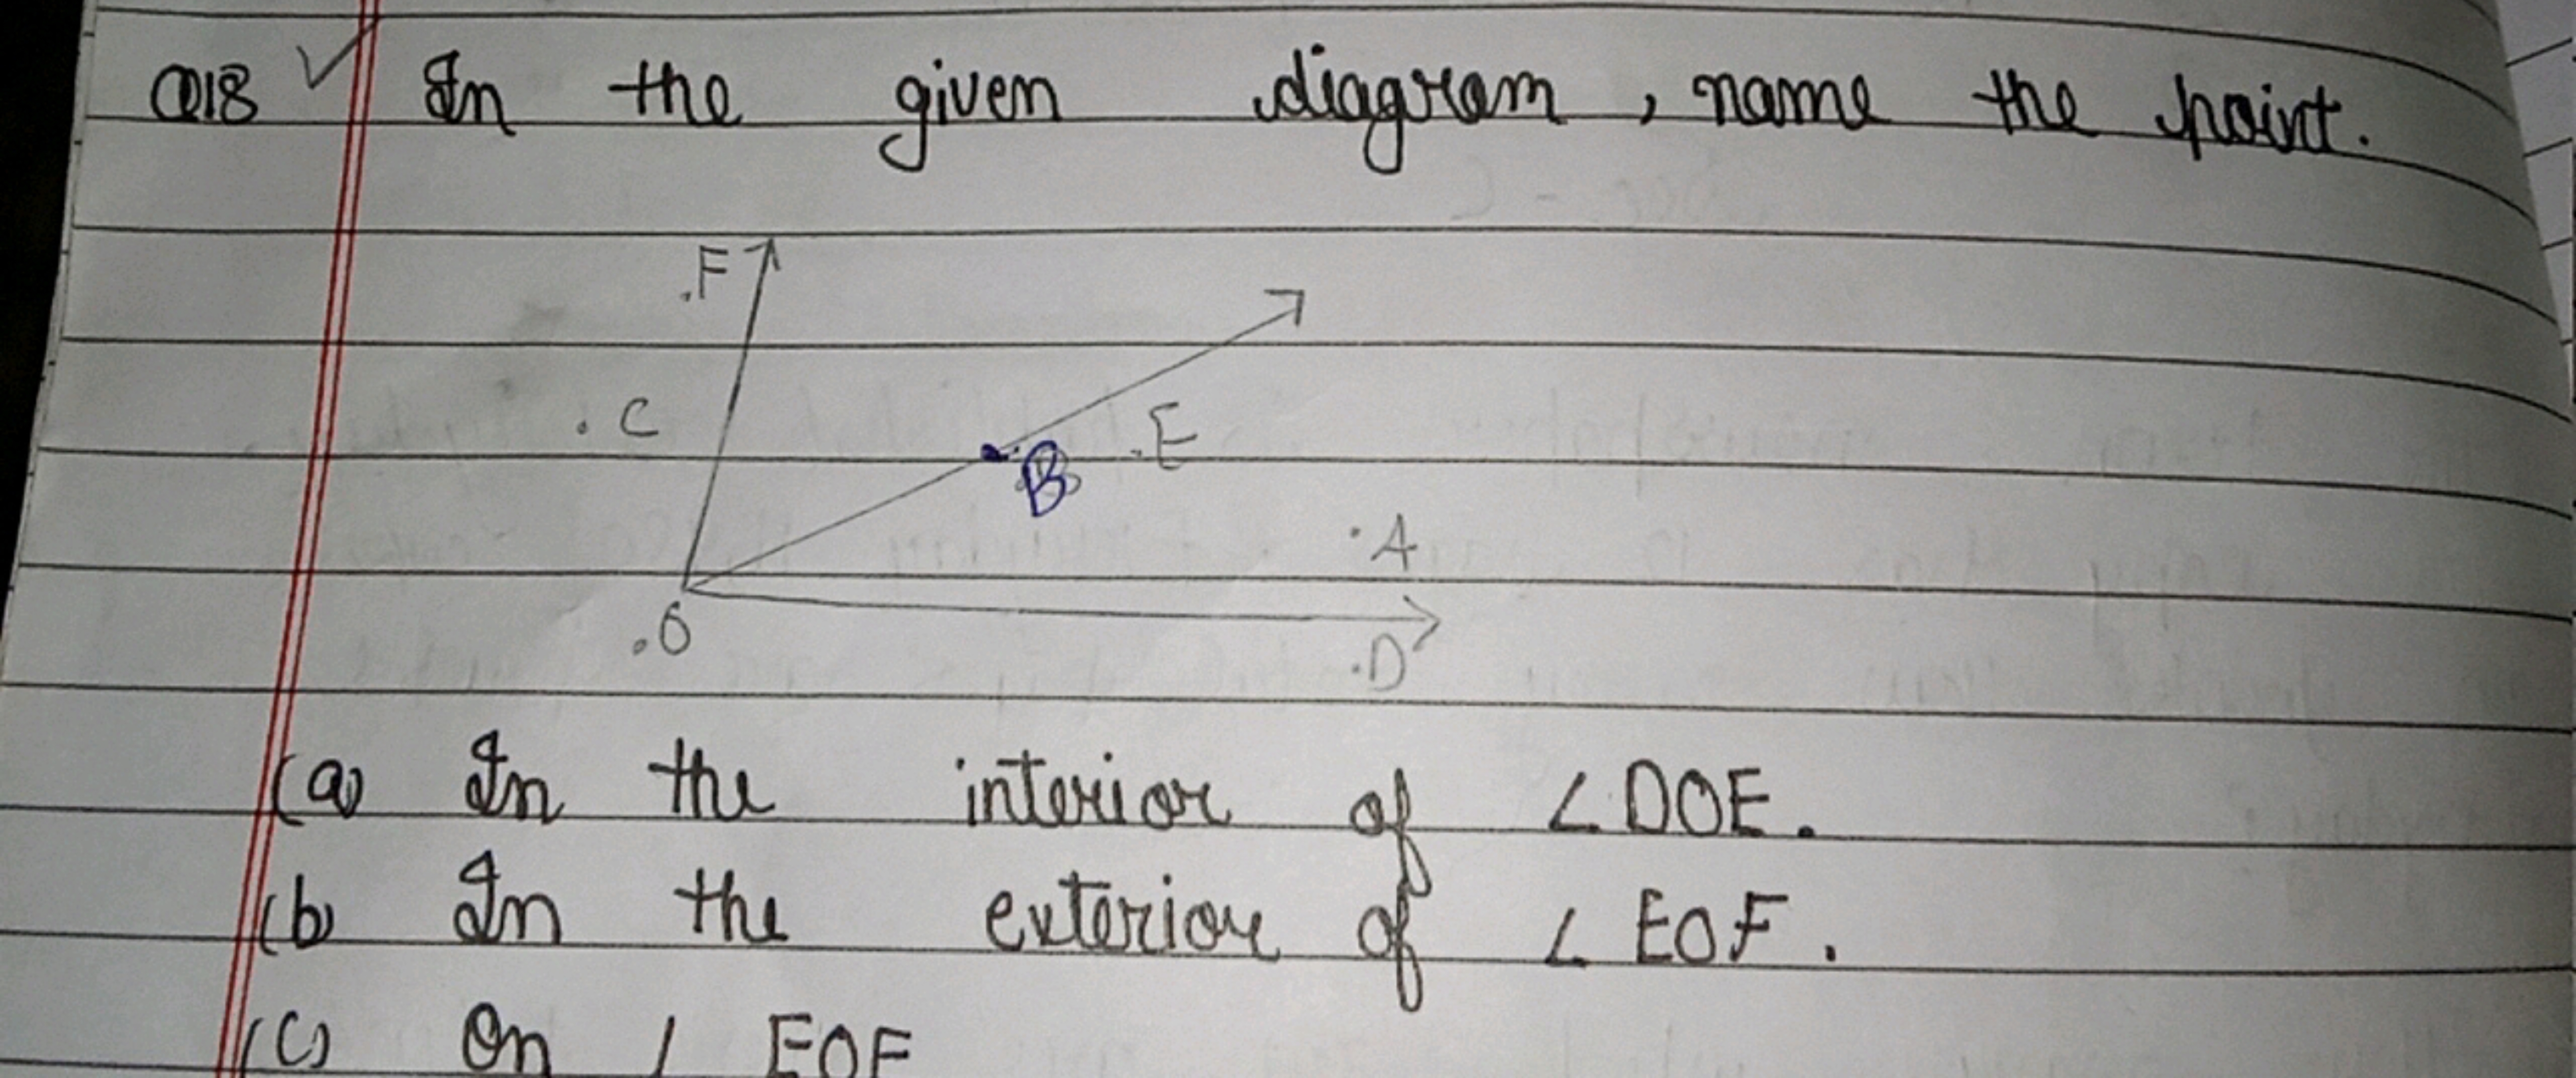 Q18 In the given diagram, name the point.
.F
. C
.E
B
.A
.O
.D
(a) In the interior of ∠DOE.
(b) In the exterior of ∠EOF.
(c) On ∠EOF